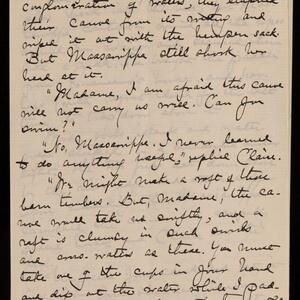 conglomeration of waters, they
their canoe from its and
wiped it out with the hempen sack.
But Massawippe still shook her
head at it.
"Madame, I am afraid this canoe
will not carry us well. Can you
swim?"
"No, Massawippe. I never learned
to do anything useful," replied Claire.
"We might make a raft of those
barn timbers. But, Madame, the ca-
noe would take us swiftly, and a
raft is clumsy in such swirls
and cross-waters as these. You must
take one of the cups in your hand
and dip out the water while I pad-